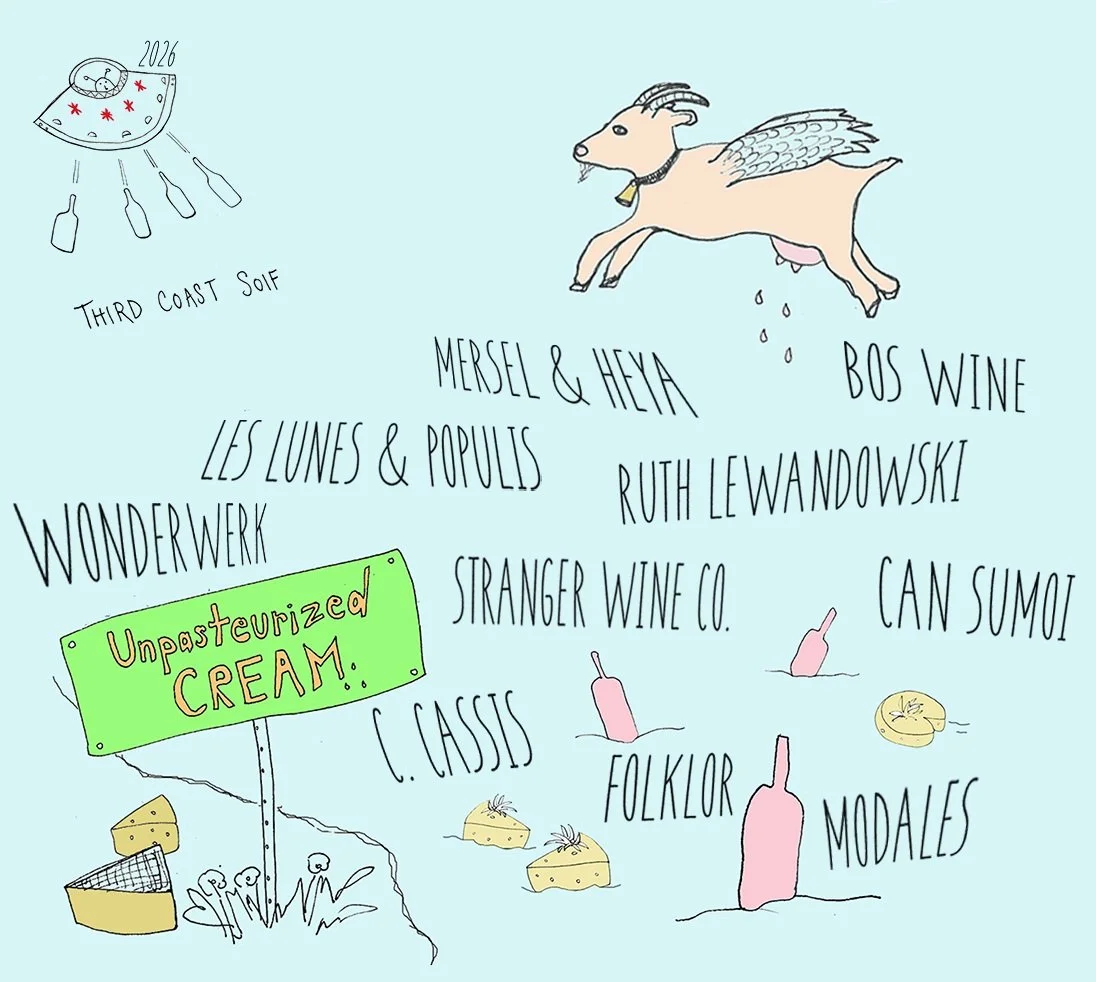 2026
THIRD COAST SOIF
MERSEL & HEYA
BOS WINE
LES LUNES & POPULIS
RUTH LEWANDOWSKI
WONDERWERK
STRANGER WINE CO.
CAN SUMOI
Unpasteurized
CREAM
C. CASSIS
FOLKLOR
MODALES